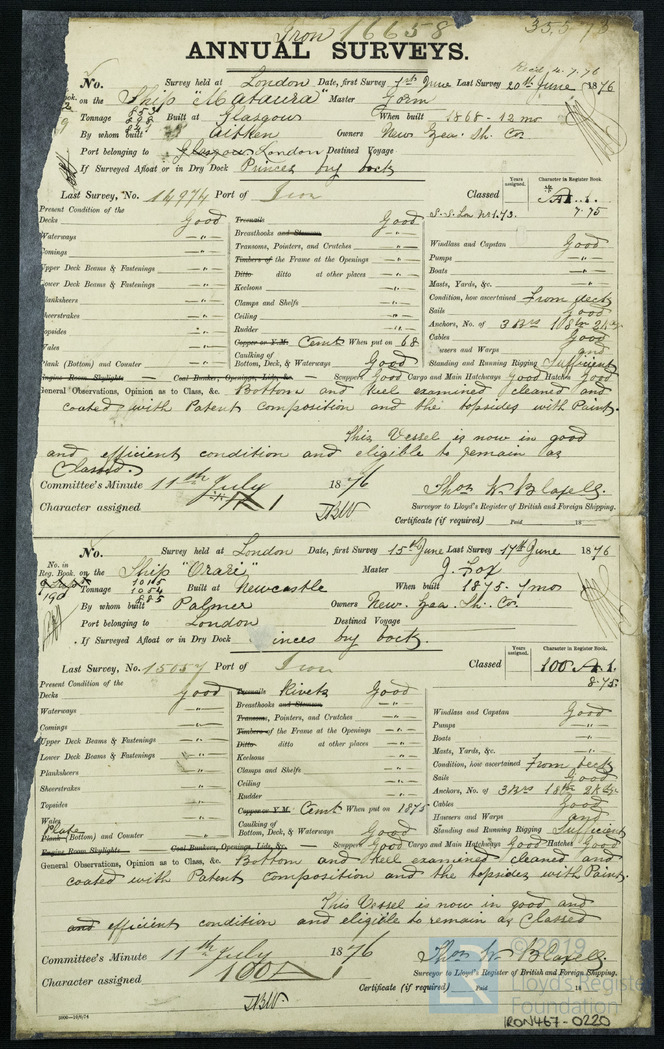 Iron 16658
ANNUAL SURVEYS.
No. Survey held at London Date, first Survey 1st June Last Survey 20th June 1876
on the Ship "Mataura" Master
Tonnage Built at Glasgow When built 1868 - 12 mo
By whom built Aitken Owners New Zea. Sh. Co.
Port belonging to Glasgow London Destined Voyage
If Surveyed Afloat or in Dry Dock Princes dry dock
Years assigned. Character in Register Book.
Last Survey, No. 14974 Port of Iron Classed A1.
7.75
Present Condition of the
Decks Good Treenails Good
Waterways " Breasthooks and Stemson " Windlass and Capstan Good
Comings " Transoms, Pointers, and Crutches " Pumps "
Upper Deck Beams & Fastenings " Timbers of the Frame at the Openings " Boats "
Lower Deck Beams & Fastenings " Ditto ditto at other places " Masts, Yards, &c. "
Planksheers " Keelsons " Condition, how ascertained From deck
Sheerstrakes " Clamps and Shelfs " Sails Good
Topsides " Ceiling " Anchors, No. of
Wales " Rudder " Cables Good
Copper or Y.M. Cemt When put on 68 Hawsers and Warps and
Plank (Bottom) and Counter " Caulking of Bottom, Deck, & Waterways Good Standing and Running Rigging Sufficient
Engine Room Skylights Coal Bunker, Openings, Lids, &c. Scuppers Good Cargo and Main Hatchways Good Hatches Good
General Observations, Opinion as to Class, &c. Bottom and Keel examined cleaned and
coated with Patent composition and the topsides with Paint.
This Vessel is now in good
and efficient condition and eligible to remain as
Classed.
Committee's Minute 11th July 1876 Thos W. Blaxell.
Character assigned A 1 Surveyor to Lloyd's Register of British and Foreign Shipping.
Certificate (if required) Paid 18
No. Survey held at London Date, first Survey 15th June Last Survey 17th June 1876
No. in Reg. Book. on the Ship "Orari" Master J. Fox
Tonnage 1015 1054 885 Built at Newcastle When built 1875 - 7 mos
By whom built Palmer Owners New Zea. Sh. Co.
Port belonging to London Destined Voyage
If Surveyed Afloat or in Dry Dock inces dry dock.
Years assigned. Character in Register Book.
Last Survey, No. 15037 Port of Iron Classed 100 A 1.
8.75
Present Condition of the
Decks Good Treenails Rivets Good
Waterways " Breasthooks and Stemson " Windlass and Capstan Good
Comings " Transoms, Pointers, and Crutches " Pumps "
Upper Deck Beams & Fastenings " Timbers of the Frame at the Openings " Boats "
Lower Deck Beams & Fastenings " Ditto ditto at other places " Masts, Yards, &c. "
Planksheers " Keelsons " Condition, how ascertained From deck
Sheerstrakes " Clamps and Shelfs " Sails Good
Topsides " Ceiling " Anchors, No. of
Wales " Rudder " Cables Good
Plate Copper or Y.M. Cemt When put on 1875 Hawsers and Warps and
Plank (Bottom) and Counter " Caulking of Bottom, Deck, & Waterways Good Standing and Running Rigging Sufficient
Engine Room Skylights Coal Bunkers, Openings, Lids, &c. Scuppers Good Cargo and Main Hatchways Good Hatches Good
General Observations, Opinion as to Class, &c. Bottom and Keel examined cleaned and
coated with Patent composition and the topsides with Paint.
This Vessel is now in good and
and efficient condition and eligible to remain as Classed
Committee's Minute 11th July 1876 Thos W. Blaxell.
Character assigned 100 A 1 Surveyor to Lloyd's Register of British and Foreign Shipping.
Certificate (if required) Paid 18
© 2019
LR Lloyd's Register
Foundation
IRON467-0220